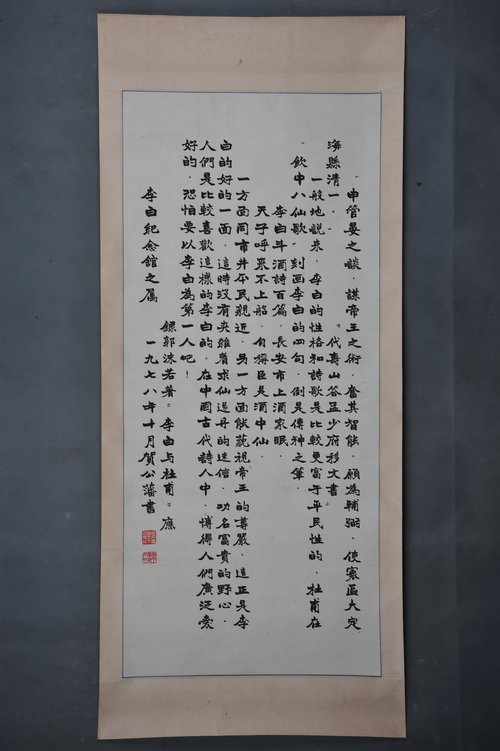 “申管晏之談，謀帝王之術，奮其智能，願為輔弼，使寰區大定，
海縣清一。”《代壽山答孟少府移文書》
一般地說來，李白的性格和詩歌是比較更富于平民性的，杜甫在
《飲中八仙歌》刻画李白的四句，倒是傳神之筆。
李白斗酒詩百篇，長安市上酒家眠，
天子呼來不上船，自稱臣是酒中仙。
一方面同市井平民親近，另一方面能藐視帝王的尊嚴，這正是李
白的好的一面，這時沒有夾雜着求仙逃丹的迷信，功名富貴的野心，
人們是比較喜歡這樣的李白的，在中國古代詩人中，博得人們廣泛愛
好的，恐怕要以李白為第一人吧！
李白紀念館之屬
錄郭沫若著《李白与杜甫》應
一九七八年十月賀公藩書